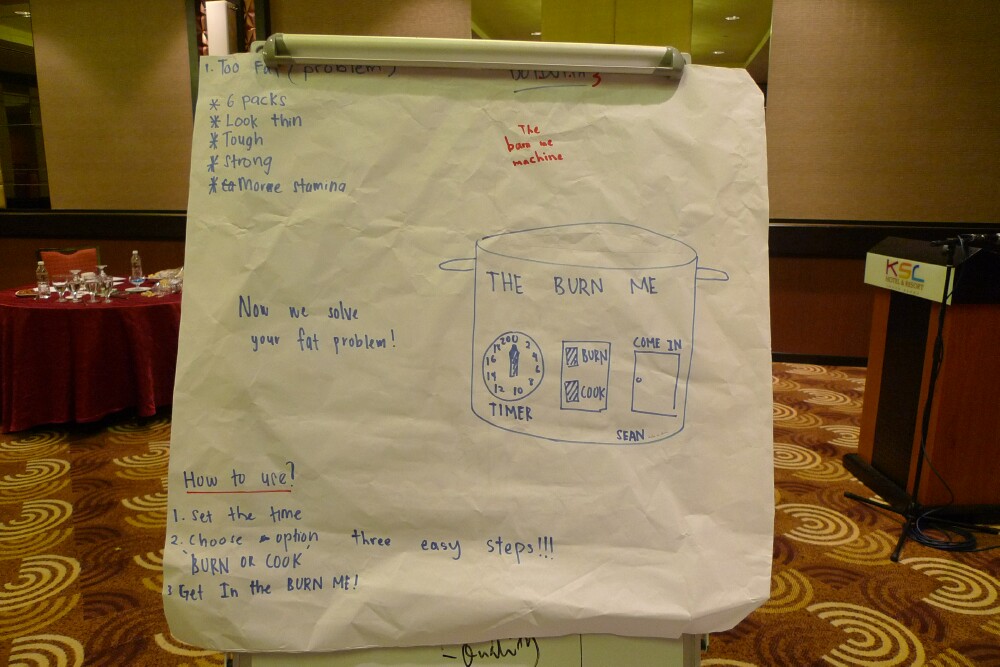 1. Too Fat (problem)
* 6 packs
* Look thin
* Tough
* Strong
* More stamina
The
burn me
machine
Now we solve
your fat problem!
THE BURN ME
20 0 2 4 6 8 10 12 14 16 18
TIMER
BURN
COOK
COME IN
SEAN
How to use?
1. Set the time
2. Choose option three easy steps!!!
'BURN OR COOK'
3 Get In the BURN ME!
- Quality
KSL
HOTEL & RESORT